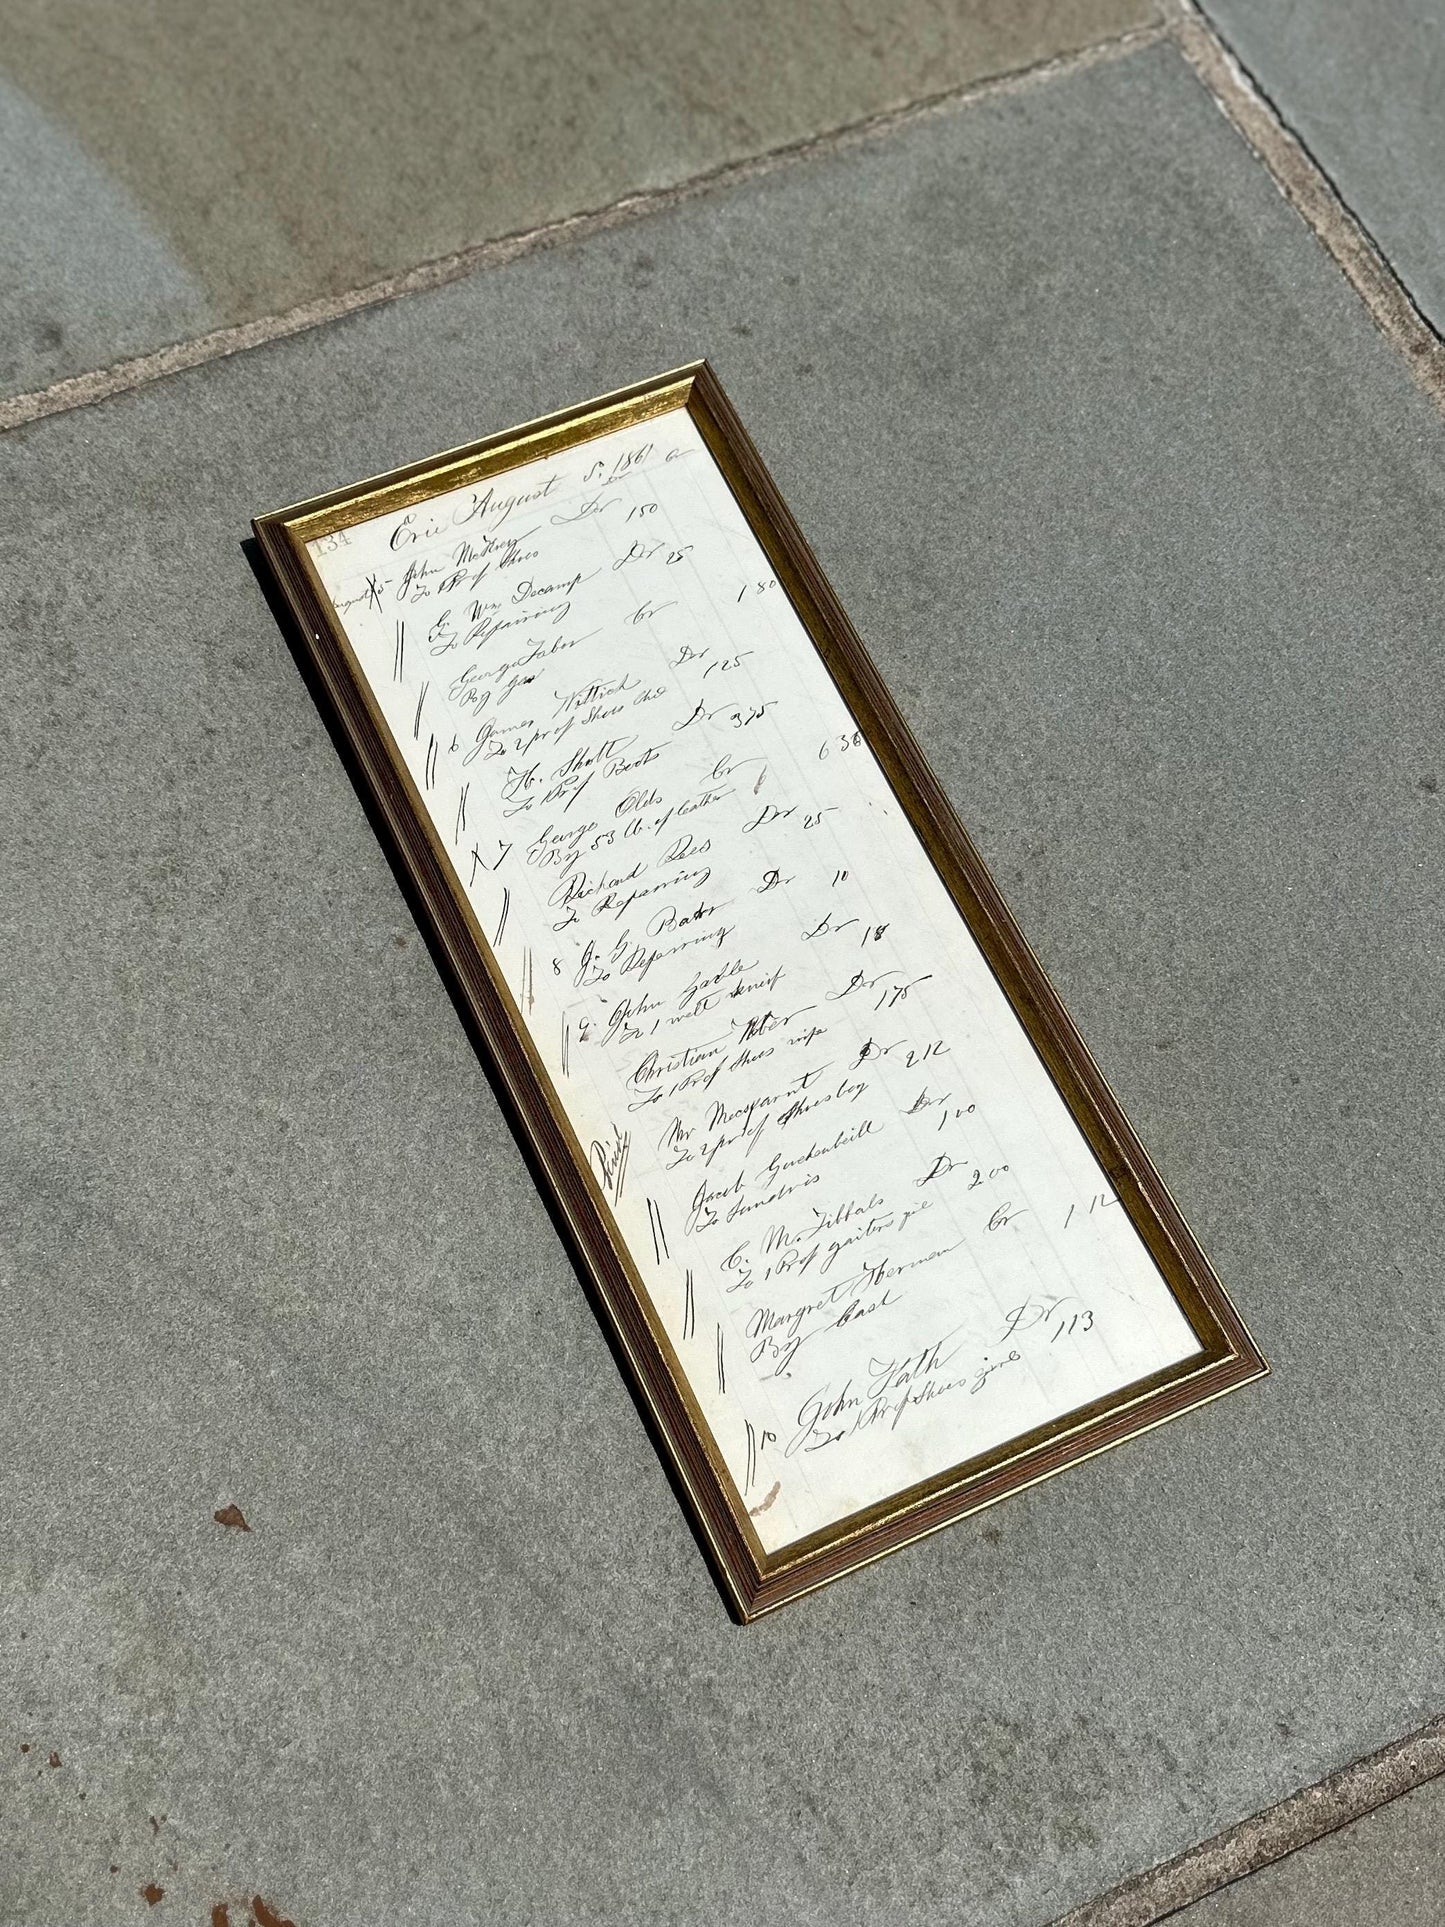 134
Erie August 5, 1861
Dr Cr
August 5 John Dr 150
To 1 Pr of Shoes
G. Wm. Decamp Dr 25
To Repairing
George Tabor Cr 1 80
By Gas
6 James Wittich Dr 125
To 2 pr of Shoes
H. Sholt Dr 375
To 1 Pr of Boots
7 George Olds Cr 6 36
By 53 lb. of leather
Richard Rees Dr 25
To Reparring
8 J. G. Dr 10
To Reparring
9. John Gable Dr 18
To 1 welt
Christian Dr 175
To 1 Pr of Shoes wife
Mr Dr 2 12
To 2 pr of Shoes boy
Jacob Dr 100
To Sundris
C. M. Tibbals Dr 2 00
To 1 Pr of gaiters
Margret Herman Cr 1 12
By Cash
10 John Fath Dr 113
To 1 Pr of Shoes